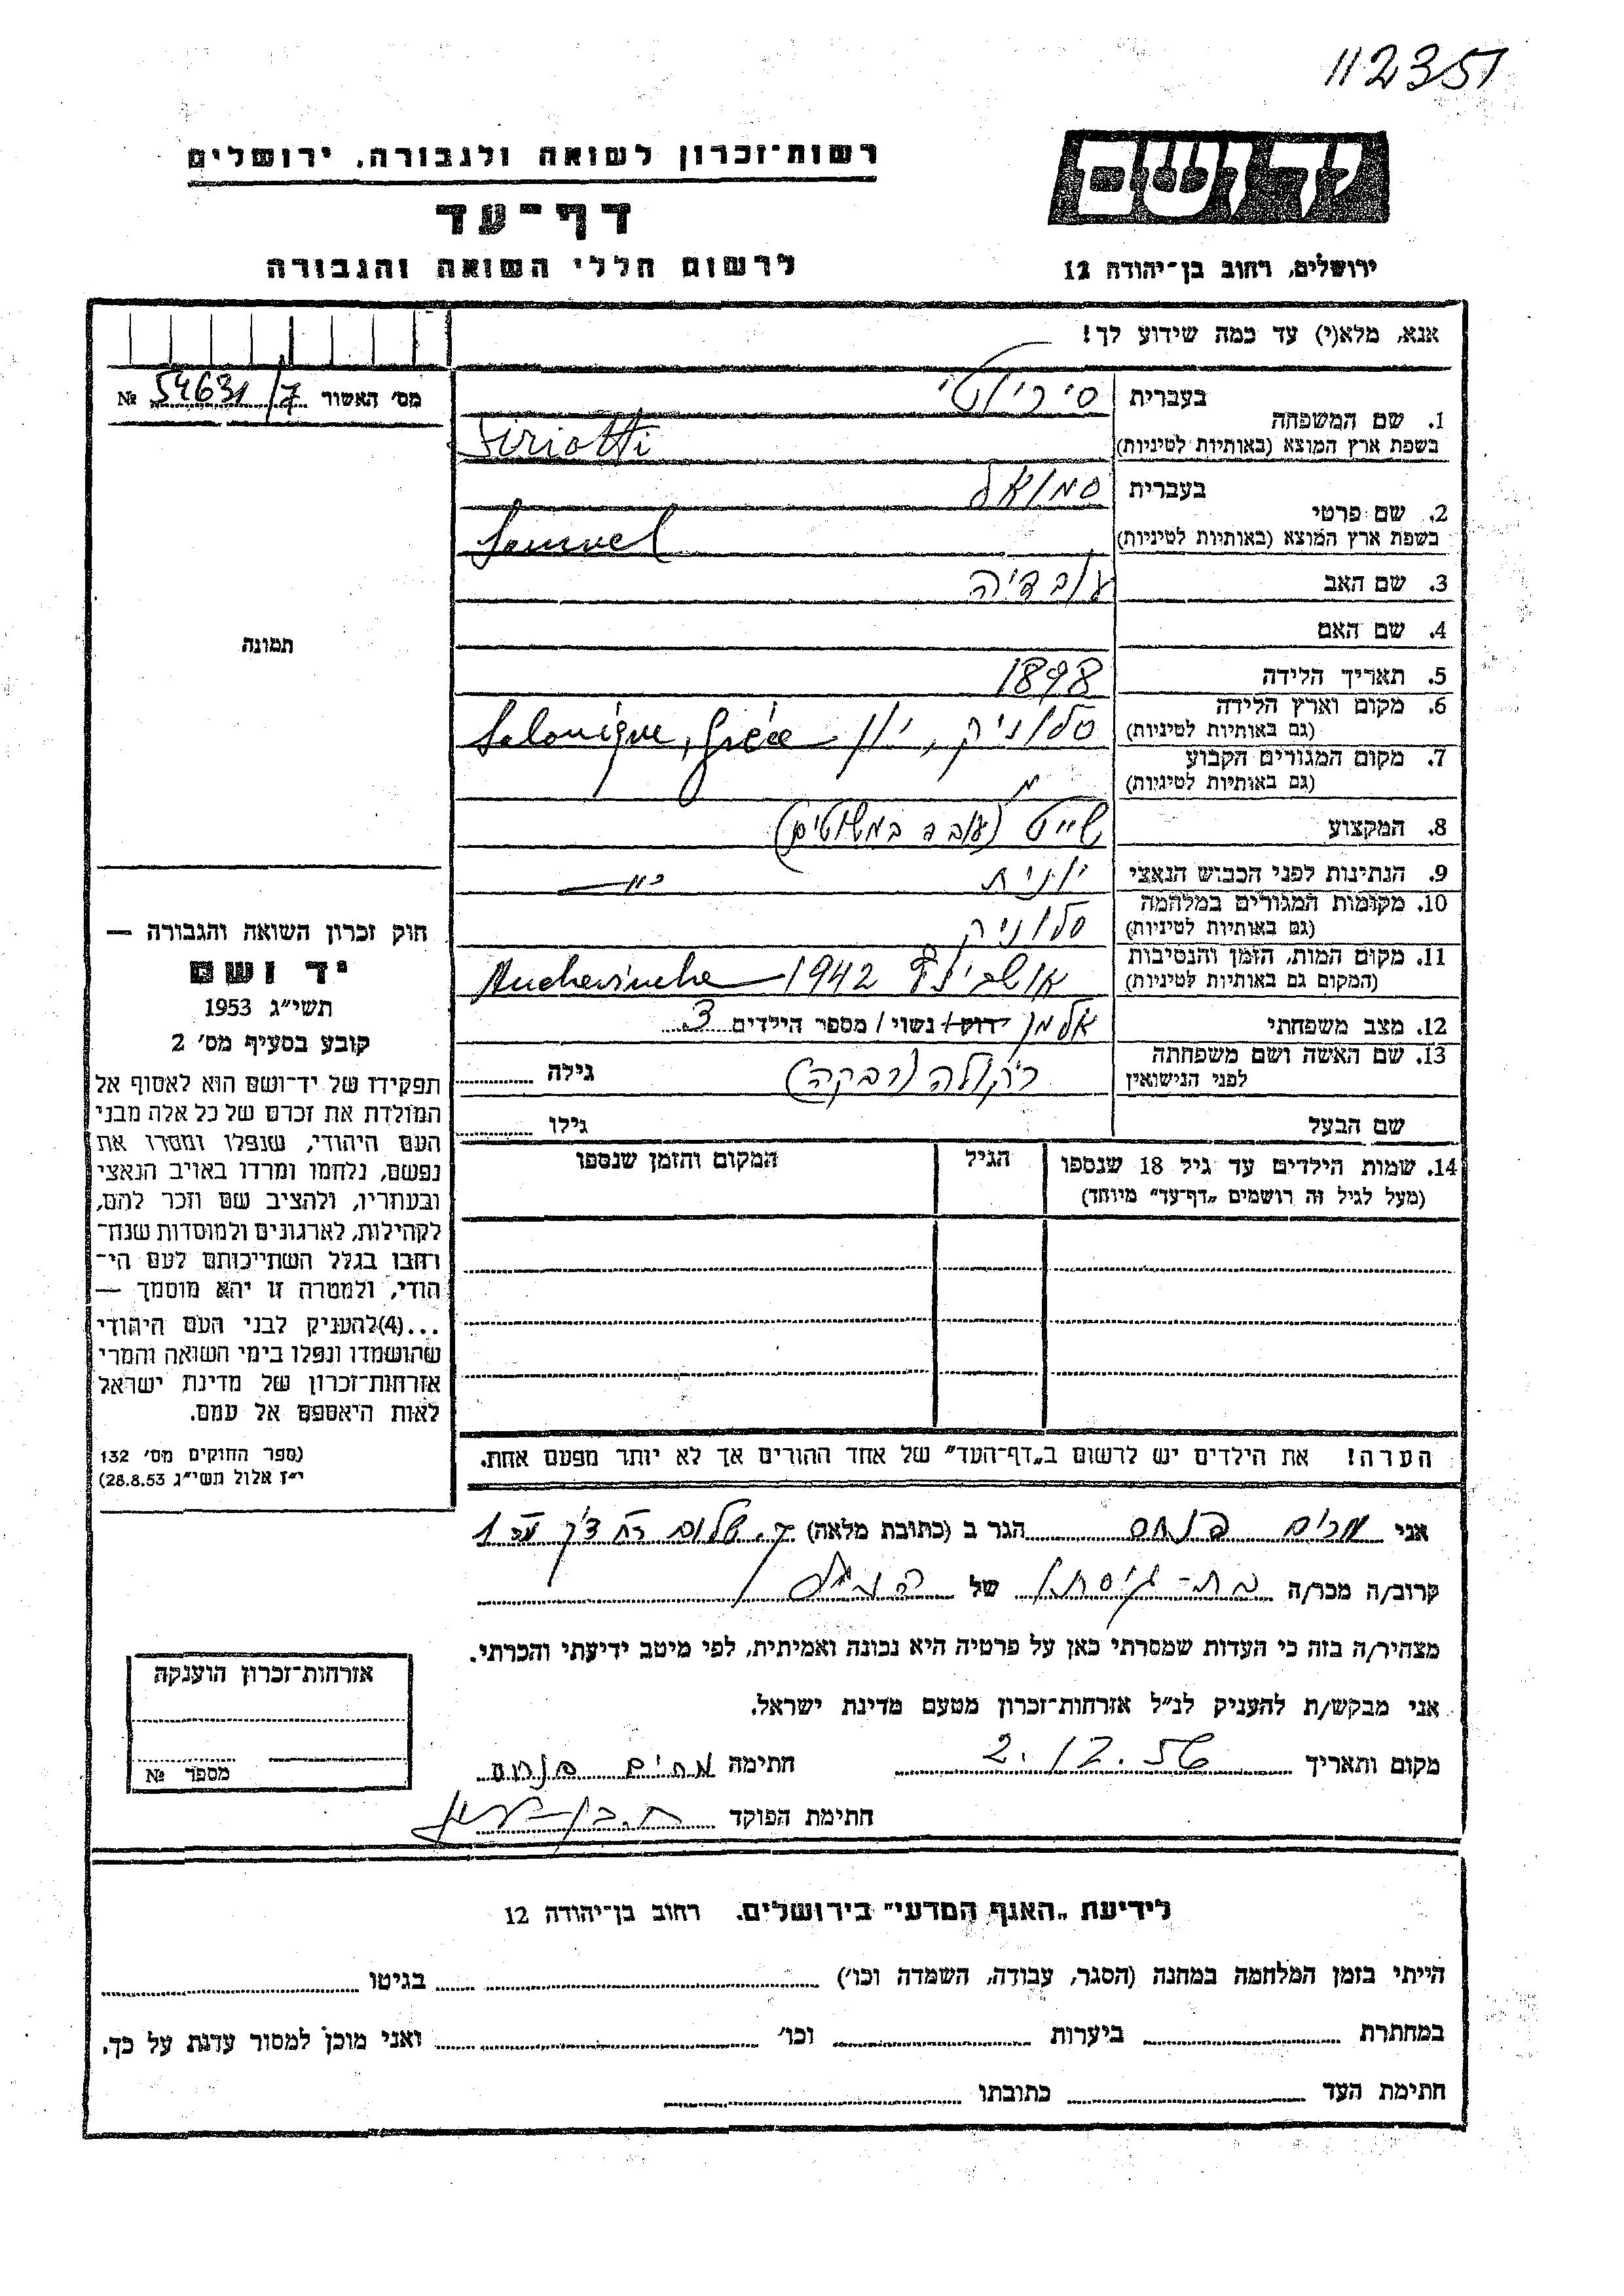 112351
יד ושם
רשות-זכרון לשואה ולגבורה, ירושלים
דף-עד
לרשום חללי השואה והגבורה
ירושלים, רחוב בן-יהודה 12
אנא, מלא(י) עד כמה שידוע לך!
מס׳ האשור 54631/7 №
1. שם המשפחה בעברית סיריוטי
בשפת ארץ המוצא (באותיות לטיניות) Siriotti
2. שם פרטי בעברית סמואל
בשפת ארץ המוצא (באותיות לטיניות) Samuel
3. שם האב עובדיה
4. שם האם
5. תאריך הלידה 1898
6. מקום וארץ הלידה
(גם באותיות לטיניות) סלוניק, יון Salonique, Grèce
7. מקום המגורים הקבוע
(גם באותיות לטיניות)
8. המקצוע שייט (עובד במשוטים)
9. הנתינות לפני הכבוש הנאצי יונית
10. מקומות המגורים במלחמה
(גם באותיות לטיניות) סלוניק
11. מקום המות, הזמן והנסיבות
(המקום גם באותיות לטיניות) 1942
12. מצב משפחתי אלמן רווק/ נשוי/ מספר הילדים 3
13. שם האשה ושם משפחתה
לפני הנישואין (רבקה) גילה
שם הבעל גילו
14. שמות הילדים עד גיל 18 שנספו הגיל המקום והזמן שנספו
(מעל לגיל זה רושמים „דף-עד״ מיוחד)
הערה! את הילדים יש לרשום ב„דף-העד״ של אחד ההורים אך לא יותר מפעם אחת.
תמונה
חוק זכרון השואה והגבורה —
יד ושם
תשי״ג 1953
קובע בסעיף מס׳ 2
תפקידו של יד-ושם הוא לאסוף אל
המולדת את זכרם של כל אלה מבני
העם היהודי, שנפלו ומסרו את
נפשם, נלחמו ומרדו באויב הנאצי
ובעוזריו, ולהציב שם וזכר להם,
לקהילות, לארגונים ולמוסדות שנח־
רבו בגלל השתייכותם לעם הי־
הודי, ולמטרה זו יהא מוסמך —
...(4)להעניק לבני העם היהודי
שהושמדו ונפלו בימי השואה והמרי
אזרחות-זכרון של מדינת ישראל
לאות היאספם אל עמם.
(ספר החוקים מס׳ 132
י״ז אלול תשי״ג 28.8.53)
אני מרים הגר ב (כתובת מלאה)
קרוב/ה מכר/ה בת-גיסתו של
מצהיר/ה בזה כי העדות שמסרתי כאן על פרטיה היא נכונה ואמיתית, לפי מיטב ידיעתי והכרתי.
אני מבקש/ת להעניק לנ״ל אזרחות-זכרון מטעם מדינת ישראל.
מקום ותאריך 2.12.56 חתימה מרים
חתימת הפוקד
אזרחות-זכרון הוענקה
מספר №
לידיעת „האגף המדעי״ בירושלים. רחוב בן-יהודה 12
הייתי בזמן המלחמה במחנה (הסגר, עבודה, השמדה וכו׳) בגיטו
במחתרת ביערות וכו׳ ואני מוכן למסור עדות על כך.
חתימת העד כתובתו